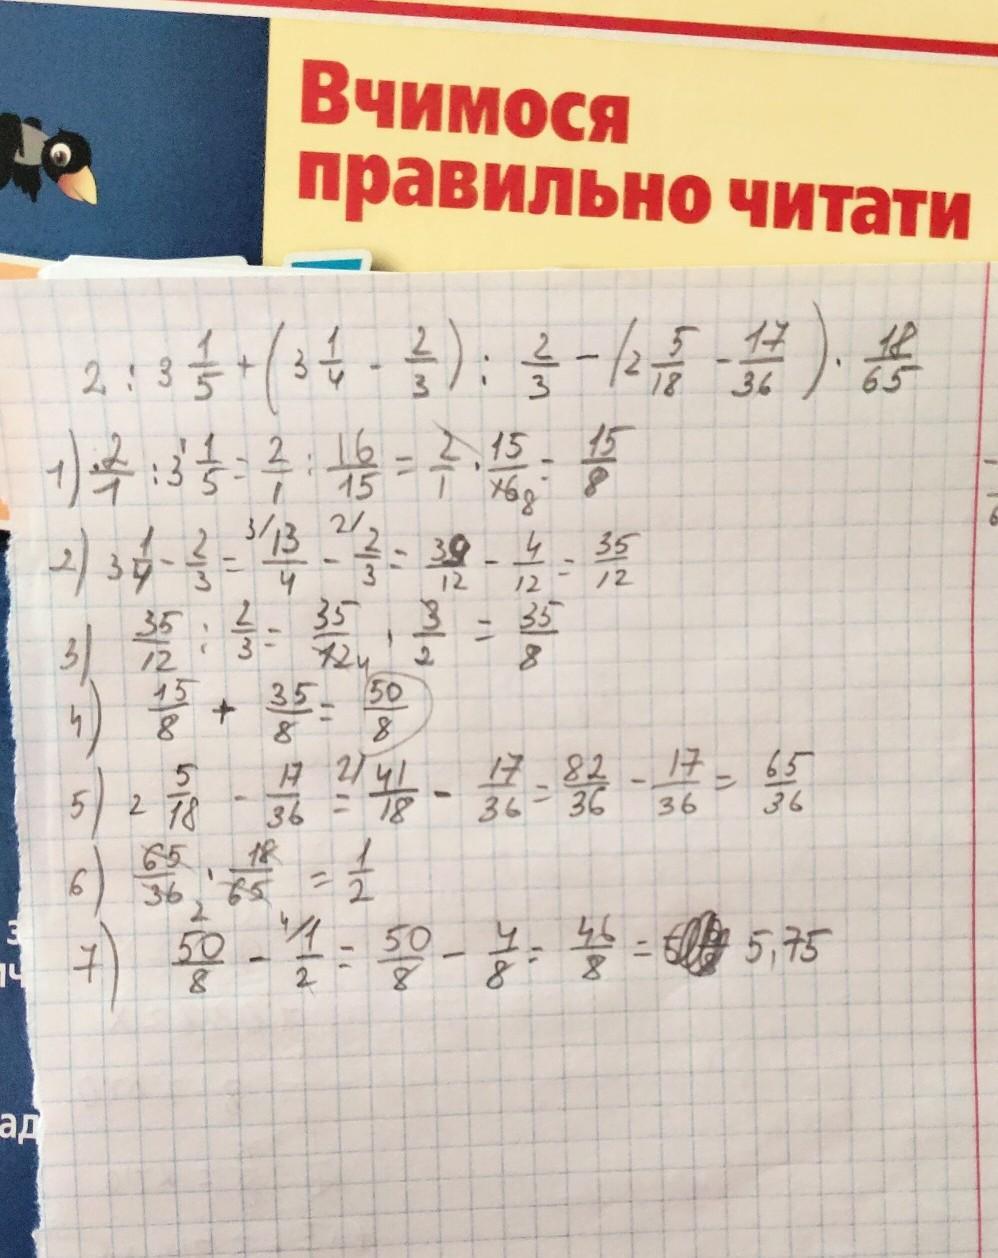 Вчимося
правильно читати
2 : 3 1/5 + (3 1/4 - 2/3) : 2/3 - (2 5/18 - 17/36) · 18/65
1) 2/1 : 3 1/5 = 2/1 : 16/15 = 2/1 · 15/16 8 = 15/8
2) 3 1/4 - 2/3 = 3/ 13/4 - 2/ 2/3 = 39/12 - 4/12 = 35/12
3) 35/12 : 2/3 = 35/12 4 · 3/2 = 35/8
4) 15/8 + 35/8 = 50/8
5) 2 5/18 - 17/36 = 2/ 41/18 - 17/36 = 82/36 - 17/36 = 65/36
6) 65/36 2 · 18/65 = 1/2
7) 50/8 - 4/ 1/2 = 50/8 - 4/8 = 46/8 = 5,75
з
ич
ад
6